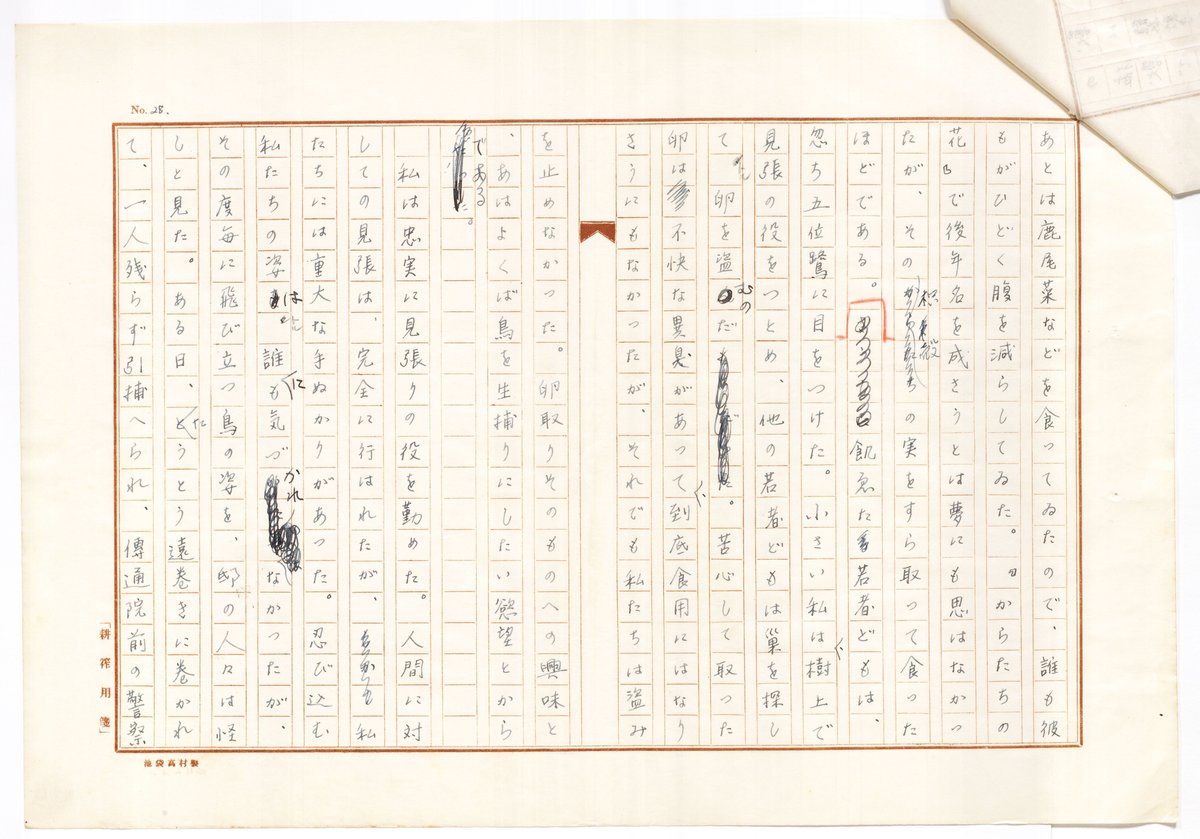 No. 28.
あとは鹿尾菜などを食ってゐたので、誰も彼
もがひどく腹を減らしてゐた。からたちの
花で後年名を成さうとは夢にも思はなかっ
たが、その枳殻の実をすら取って食った
ほどである。飢ゑた若者どもは、
忽ち五位鷺に目をつけた。小さい私は樹上で
見張の役をつとめ、他の若者どもは巣を探し
て卵を盗むのだ。苦心して取った
卵は不快な異臭があって到底食用にはなり
さうにもなかったが、それでも私たちは盗み
を止めなかった。卵取りそのものへの興味と
、あはよくば鳥を生捕りにしたい慾望とから
である。
私は忠実に見張りの役を勤めた。人間に対
しての見張は、完全に行はれたが、私
たちには重大な手ぬかりがあった。忍び込む
私たちの姿は誰にも気づかれなかったが、
その度毎に飛び立つ鳥の姿を、邸の人々は怪
しと見た。ある日、たうとう遠巻きに巻かれ
て、一人残らず引捕へられ、傳通院前の警察
「耕窄用箋」
池袋高村製